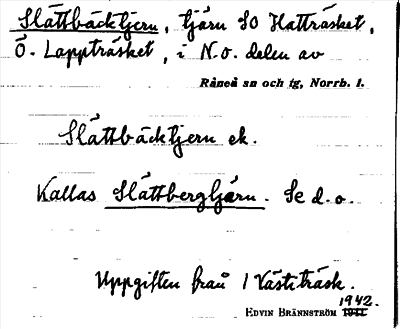 Slåttbäcktjern, tjärn SO Hatträsket,
Ö. Lappträsket, i N.O. delen av
Råneå sn och tg, Norrb. l.
Slåttbäcktjern ek.
Kallas Slåttbergtjärn. Se d.o.
Uppgiften från 1 Västiträsk.
1942.
EDVIN BRÄNNSTRÖM 1941